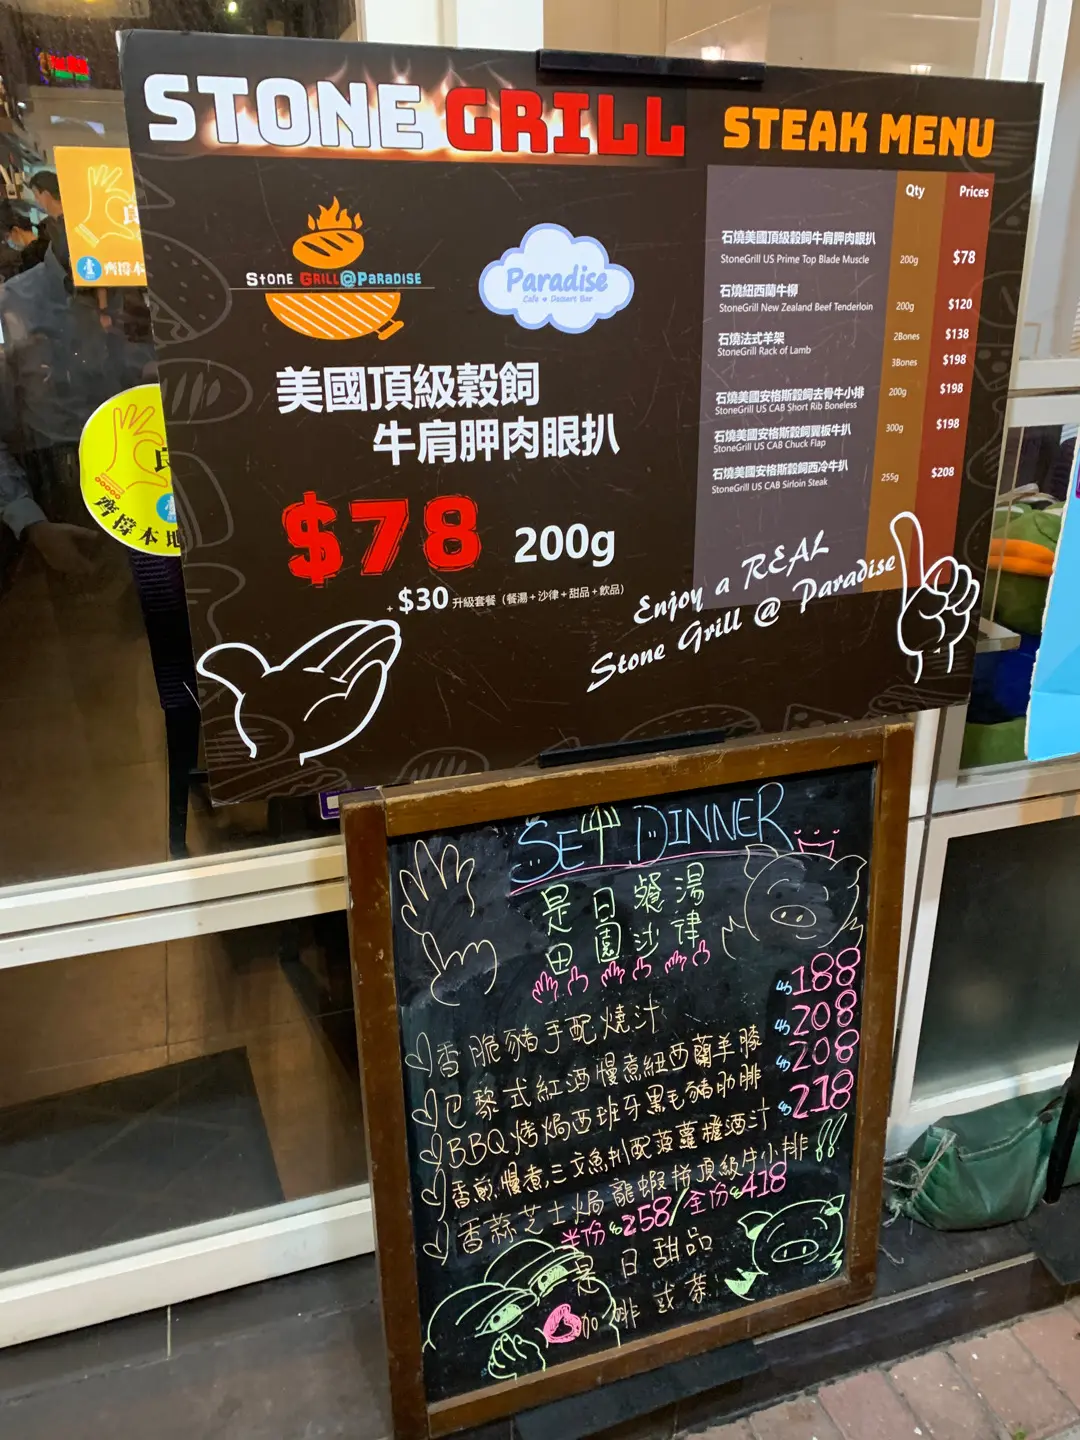 STONE GRILL
STEAK MENU
Qty Prices
石燒美國頂級穀飼牛肩胛肉眼扒
StoneGrill US Prime Top Blade Muscle 200g $78
石燒紐西蘭牛柳
StoneGrill New Zealand Beef Tenderloin 200g $120
石燒法式羊架 2Bones $138
StoneGrill Rack of Lamb
3Bones $198
石燒美國安格斯穀飼去骨牛小排 200g $198
StoneGrill US CAB Short Rib Boneless
石燒美國安格斯穀飼翼板牛扒 300g $198
StoneGrill US CAB Chuck Flap
石燒美國安格斯穀飼西冷牛扒 255g $208
StoneGrill US CAB Sirloin Steak
STONE GRILL@PARADISE
Paradise
Cafe & Dessert Bar
美國頂級穀飼
牛肩胛肉眼扒
$78 200g
+ $30 升級套餐（餐湯+沙律+甜品+飲品）
Enjoy a REAL
Stone Grill @ Paradise
齊撐本地
SET DINNER
是日餐湯
田園沙律
香脆豬手配燒汁 $188
巴黎式紅酒慢煮紐西蘭羊膝 $208
BBQ烤焗西班牙黑毛豬肋排 $208
香煎慢煮三文魚扒配菠蘿橙酒汁 $218
香蒜芝士焗龍蝦拼頂級牛小排!!
半份$258/全份$418
是日甜品
咖啡或茶